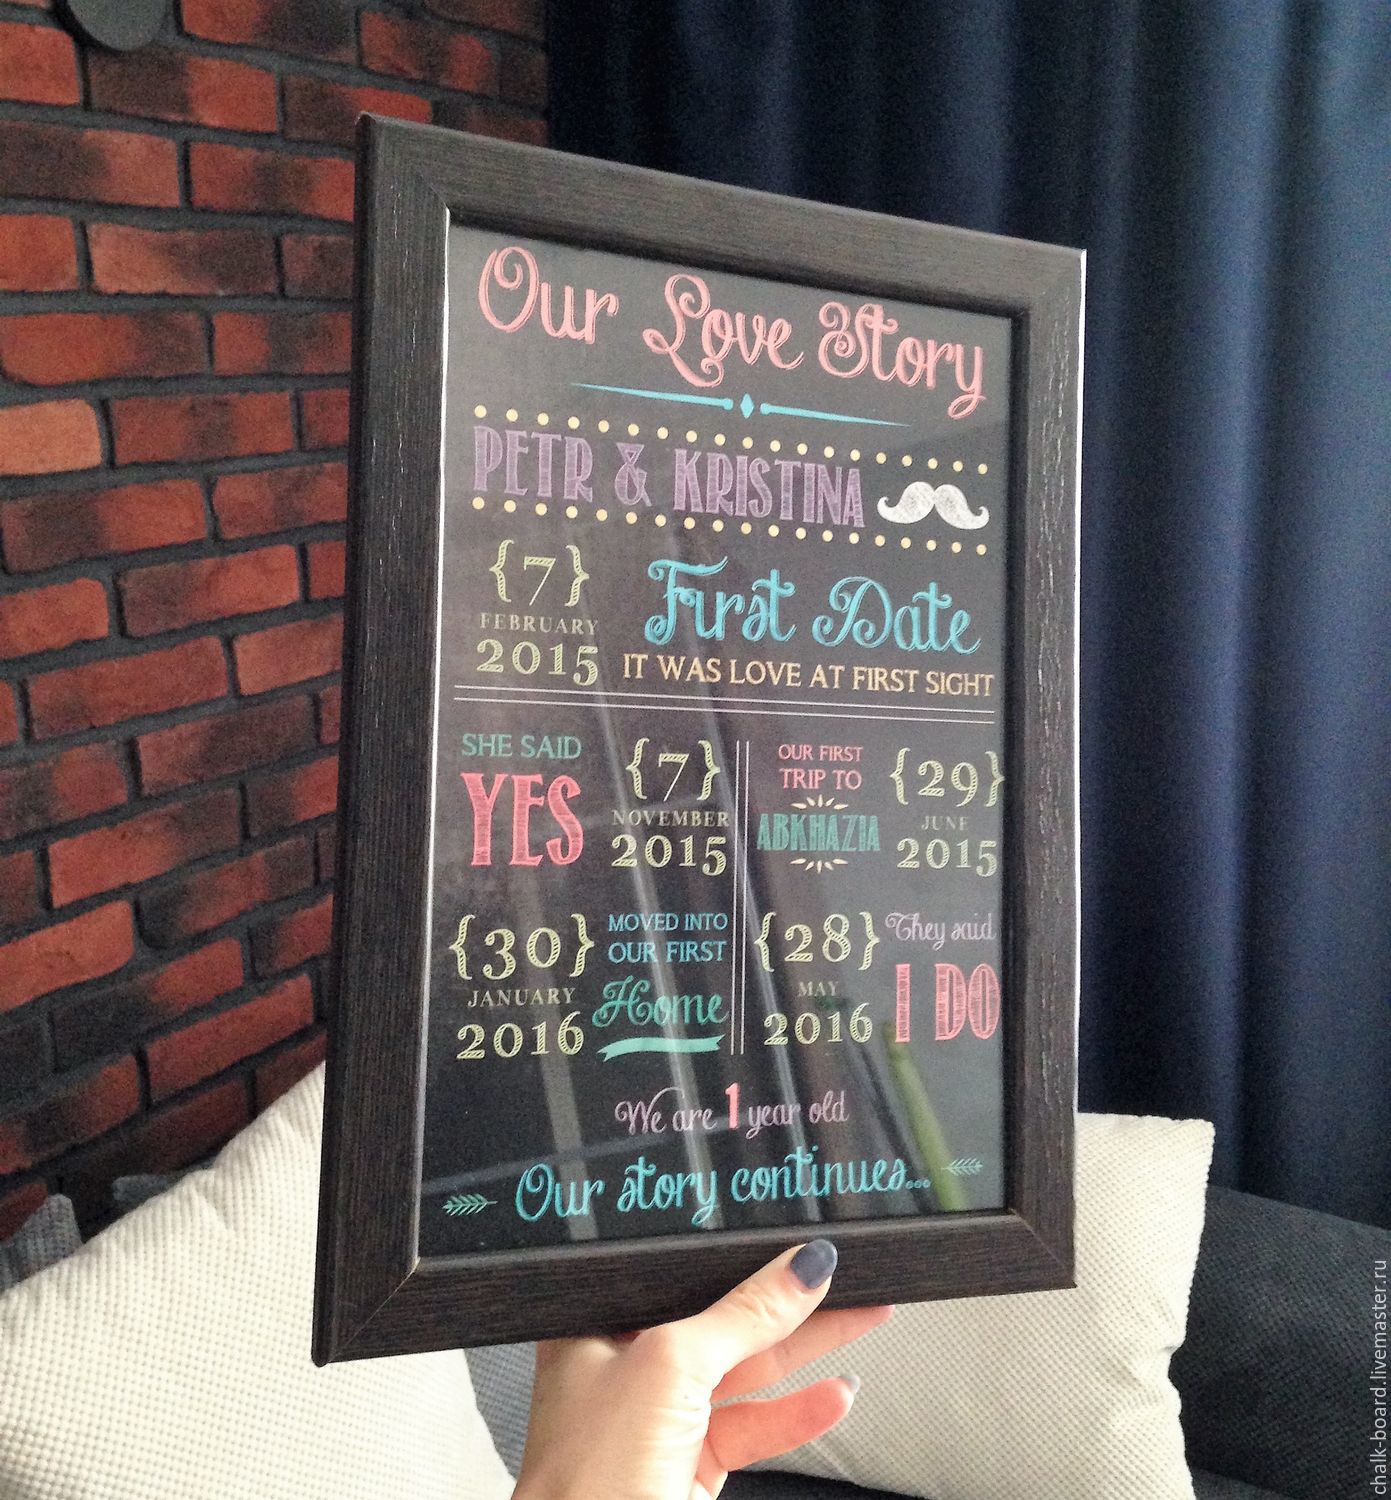 Our Love Story
PETR & KRISTINA
{7}
FEBRUARY
2015
First Date
IT WAS LOVE AT FIRST SIGHT
SHE SAID
YES
{7}
NOVEMBER
2015
OUR FIRST
TRIP TO
ABKHAZIA
{29}
JUNE
2015
{30}
JANUARY
2016
MOVED INTO
OUR FIRST
Home
{28}
MAY
2016
They said
I DO
We are 1 year old
Our story continues...
chalk-board.livemaster.ru